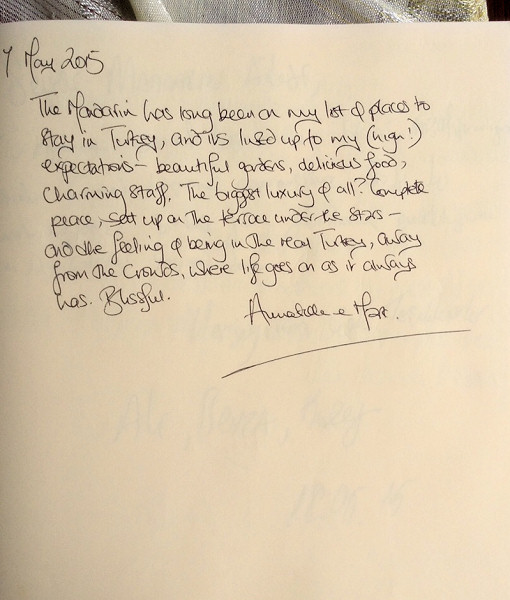 7 May 2015
The Mandarin has long been on my list of places to
stay in Turkey, and it's lived up to my (high!)
expectations – beautiful gardens, delicious food,
charming staff. The biggest luxury of all? Complete
peace, sat up on the terrace under the stars –
and the feeling of being in the real Turkey, away
from the crowds, where life goes on as it always
has. Blissful.